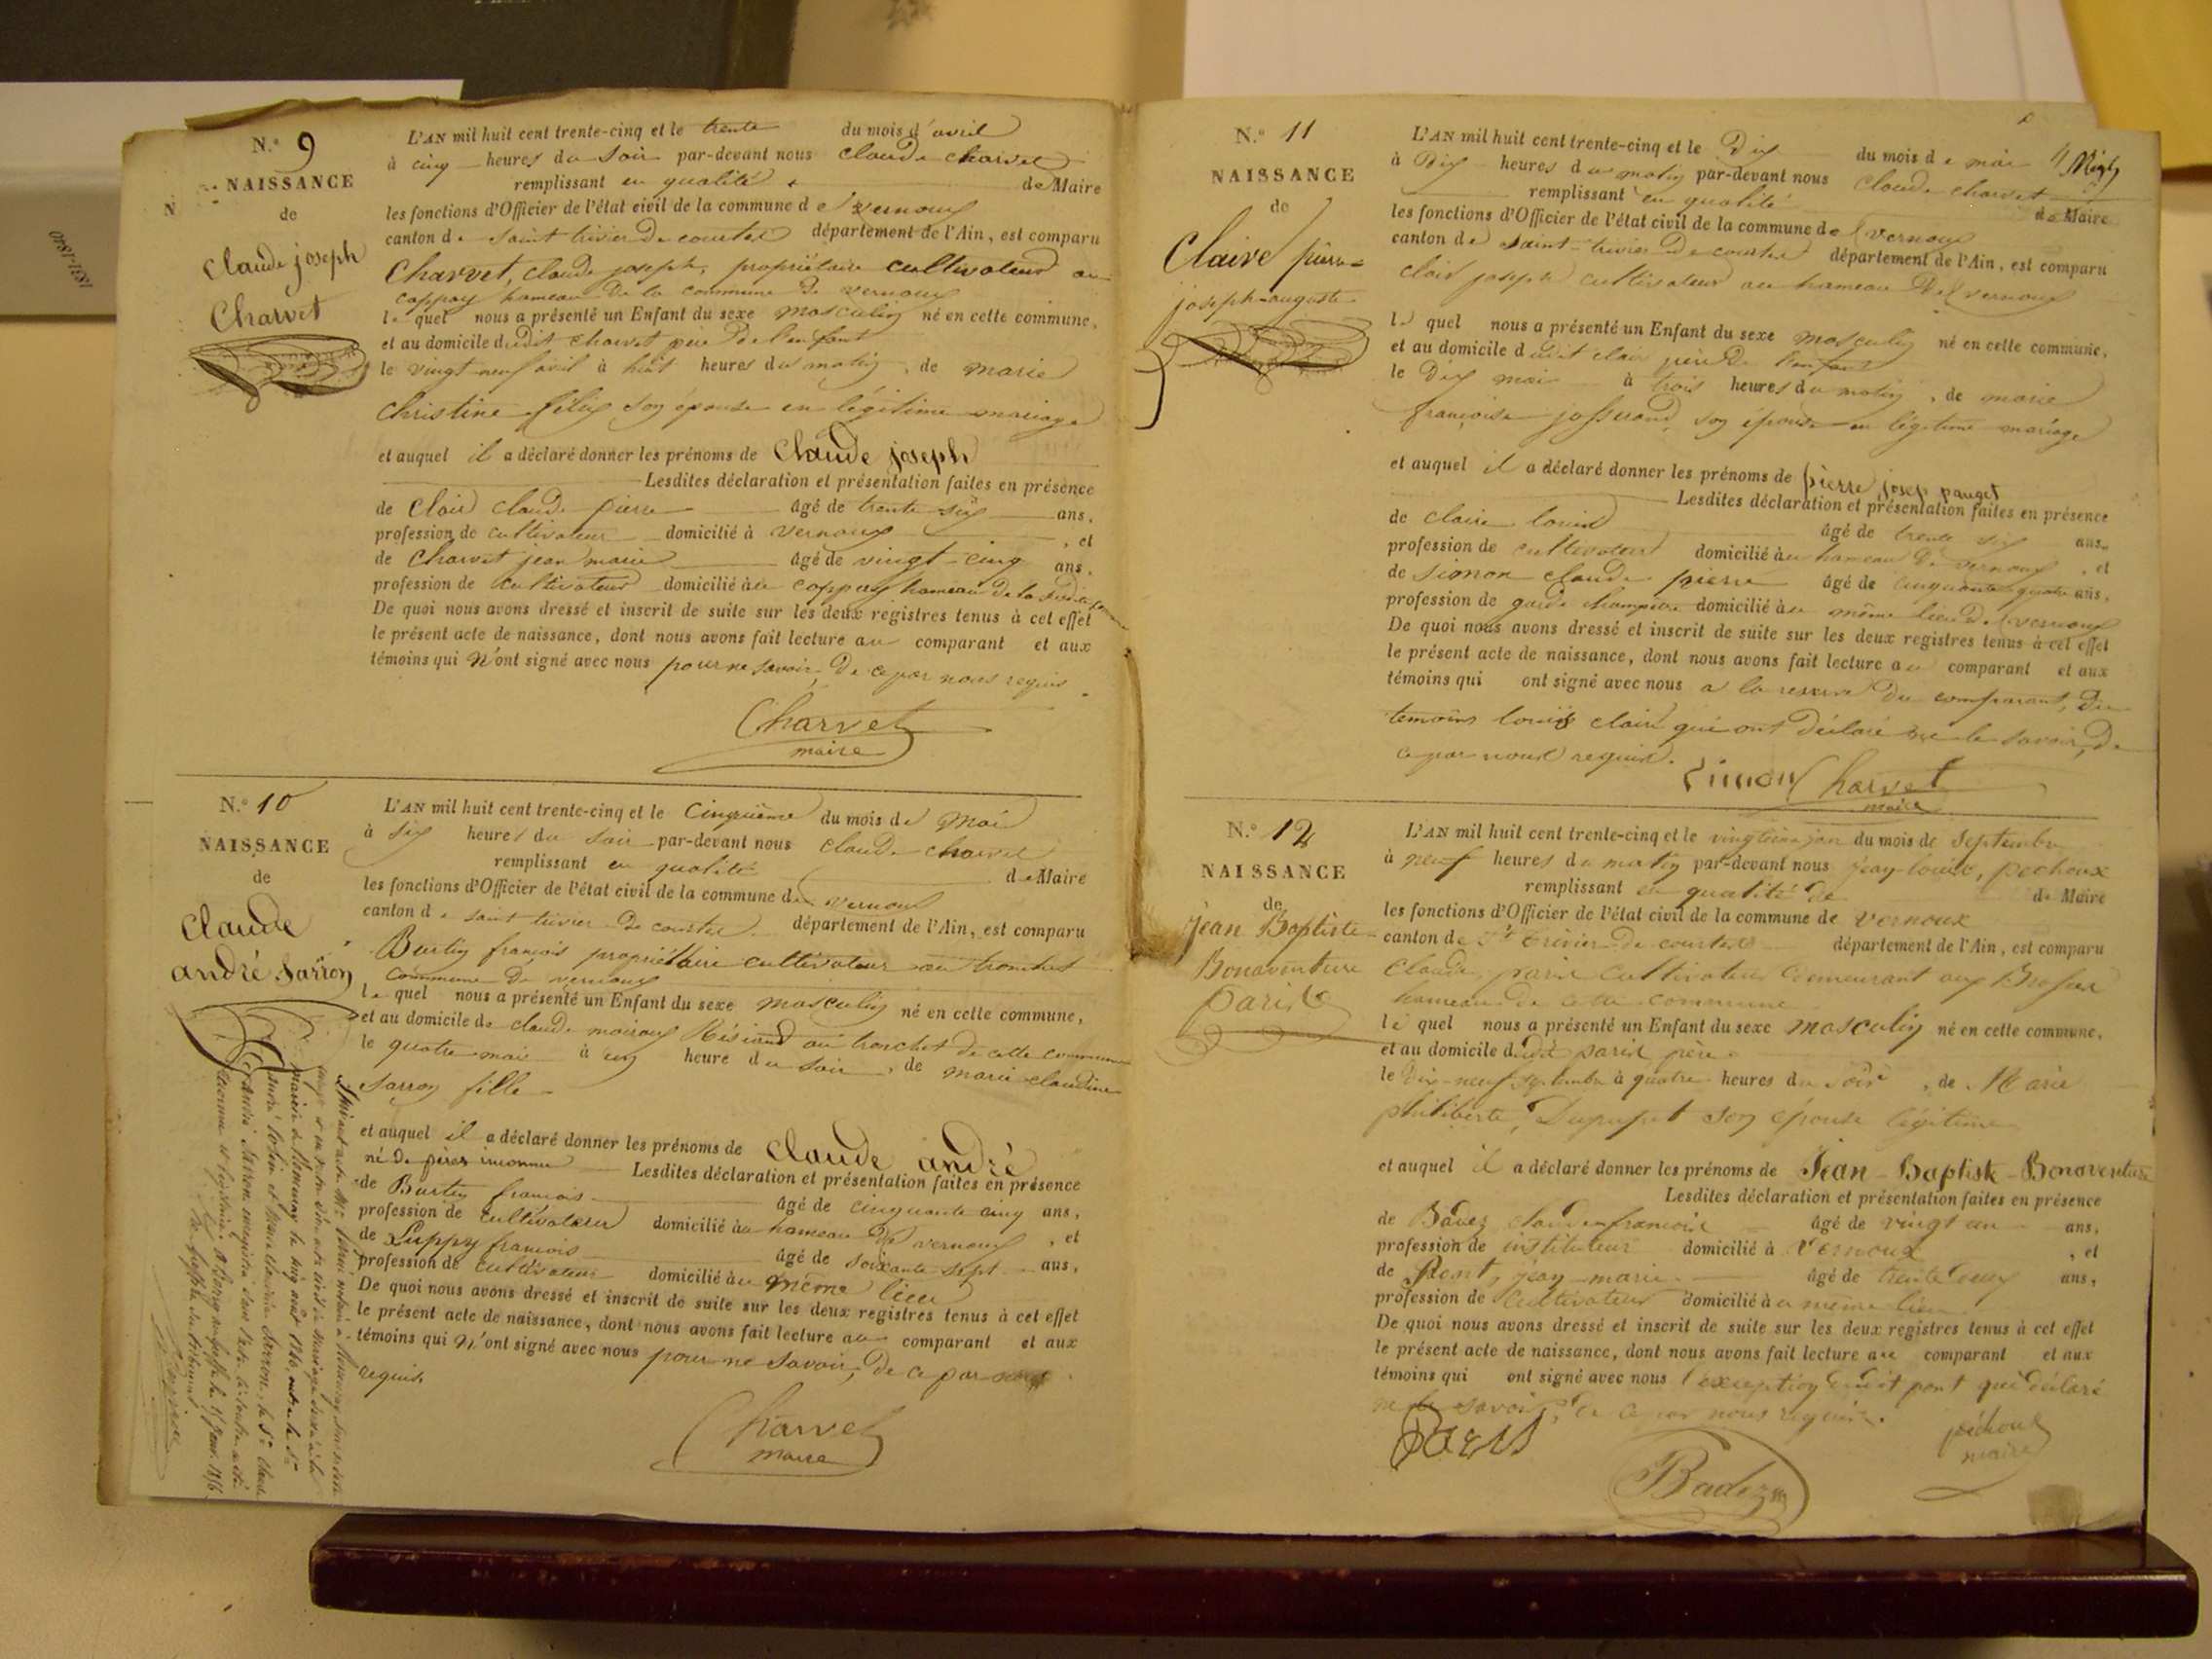 1831-1840
N.° 9
NAISSANCE
de
Claude joseph
Charvet
L'AN mil huit cent trente-cinq et le trente du mois d'avril
à cinq heures du soir par-devant nous claude charvet
remplissant en qualité de Maire
les fonctions d'Officier de l'état civil de la commune de vernoux
canton de saint trivier de courtes département de l'Ain, est comparu
Charvet, claude joseph, propriétaire cultivateur au
coppay hameau de la commune de vernoux
le quel nous a présenté un Enfant du sexe masculin né en cette commune,
et au domicile dudit charvet père de l'enfant
le vingt neuf avril à huit heures du matin, de marie
christine félix son épouse en légitime mariage
et auquel il a déclaré donner les prénoms de Claude joseph
Lesdites déclaration et présentation faites en présence
de Clair claude pierre âgé de trente six ans,
profession de cultivateur domicilié à vernoux, et
de charvet jean marie âgé de vingt-cinq ans,
profession de cultivateur domicilié au coppay hameau de la
De quoi nous avons dressé et inscrit de suite sur les deux registres tenus à cet effet
le présent acte de naissance, dont nous avons fait lecture au comparant et aux
témoins qui n'ont signé avec nous pour ne savoir, de ce par nous requis
Charvet
maire
N.° 10
NAISSANCE
de
Claude
andré Sarron
L'AN mil huit cent trente-cinq et le cinquième du mois de Mai
à six heures du soir par-devant nous claude charvet
remplissant en qualité de Maire
les fonctions d'Officier de l'état civil de la commune de vernoux
canton de saint trivier de courtes département de l'Ain, est comparu
Burtin françois propriétaire cultivateur au tronchet
commune de vernoux
le quel nous a présenté un Enfant du sexe masculin né en cette commune,
et au domicile de claude moiroux Résident au tronchet de cette commune
le quatre mai à un heure du soir, de marie claudine
Sarron fille
et auquel il a déclaré donner les prénoms de Claude andré
né de père inconnu Lesdites déclaration et présentation faites en présence
de Burtin françois âgé de cinquante cinq ans,
profession de cultivateur domicilié au hameau de vernoux, et
de Luppy françois âgé de soixante sept ans,
profession de cultivateur domicilié au même lieu
De quoi nous avons dressé et inscrit de suite sur les deux registres tenus à cet effet
le présent acte de naissance, dont nous avons fait lecture au comparant et aux
témoins qui n'ont signé avec nous pour ne savoir, de ce par nous
requis
Charvet
maire
N.° 11
NAISSANCE
de
Claire pierre=
joseph-auguste
L'AN mil huit cent trente-cinq et le Dix du mois de mai
à Dix heures du matin par-devant nous claude charvet
remplissant en qualité de Maire
les fonctions d'Officier de l'état civil de la commune de vernoux
canton de saint-trivier de courtes département de l'Ain, est comparu
clair joseph cultivateur au hameau de vernoux
le quel nous a présenté un Enfant du sexe masculin né en cette commune,
et au domicile dudit clair père de l'enfant
le Dix mai à trois heures du matin, de marie
françoise josserand son épouse en légitime mariage
et auquel il a déclaré donner les prénoms de pierre josep
Lesdites déclaration et présentation faites en présence
de claire louis âgé de trente six ans,
profession de cultivateur domicilié au hameau de vernoux, et
de simon claude pierre âgé de cinquante quatre ans,
profession de garde champetre domicilié au même lieu de vernoux
De quoi nous avons dressé et inscrit de suite sur les deux registres tenus à cet effet
le présent acte de naissance, dont nous avons fait lecture au comparant et aux
témoins qui ont signé avec nous a la reserve du comparant, du
temoins louis claire qui ont déclaré ne le savoir, de
ce par nous requis.
Simon Charvet
maire
N.° 12
NAISSANCE
de
Jean Baptiste
Bonaventure
Paris
L'AN mil huit cent trente-cinq et le vingtième jour du mois de Septembre
à neuf heures du matin par-devant nous jean-louis, pechoux
remplissant en qualité de de Maire
les fonctions d'Officier de l'état civil de la commune de vernoux
canton de St trivier de courtes département de l'Ain, est comparu
Claude paris cultivateur demeurant aux
hameau de cette commune
le quel nous a présenté un Enfant du sexe masculin né en cette commune,
et au domicile dudit paris père
le Dix-neuf septembre à quatre heures du soir, de Marie
philiberte, Dupupet son épouse légitime
et auquel il a déclaré donner les prénoms de Jean-Baptiste-Bonaventure
Lesdites déclaration et présentation faites en présence
de Badez claude françois âgé de vingt un ans,
profession de instituteur domicilié à Vernoux, et
de Pont, jean-marie âgé de trente deux ans,
profession de cultivateur domicilié au même lieu
De quoi nous avons dressé et inscrit de suite sur les deux registres tenus à cet effet
le présent acte de naissance, dont nous avons fait lecture au comparant et aux
témoins qui ont signé avec nous l'exception dudit pont qui déclaré
ne le savoir, de ce par nous requis.
Paris
Badez
péchoux
maire